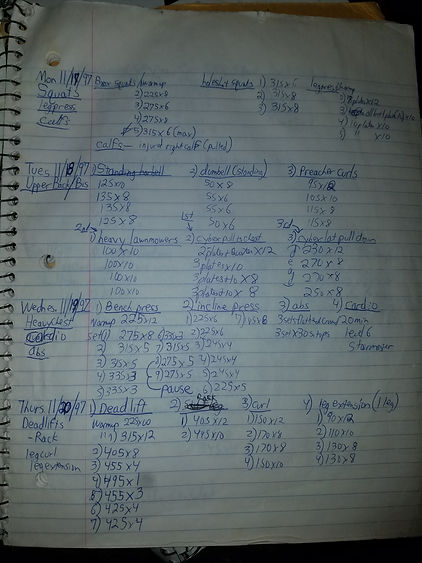 Mon 11/17/97 Box squats/warmup hacksquat squats 1) 315x6 legpress/warmup
Squats 2) 225x8 2) 315x8
legpress 3) 275x6 3) 315x8
calfs 4) 275x8
5) 315x6 (max)
calfs— injured right calf (pulled)
Tues 11/18/97 1) Standing barbell 2) dumbell (standing) 3) Preacher curls
Upper Back/Bis 125x10 50x8 95x12
135x8 55x6 105x10
135x8 55x6 115x8
125x8 50x6 115x8
2nd 1st 3rd
1) heavy lawnmowers 2) cyber pull to chest 3) cyber lat pull down
100x10 2 plate + quarter x12 1) 230x12
100x10 3 platesx10 2) 270x8
100x10 3 plates+10 x8 3) 270x8
100x10 3 plates+10x8 250x8
Wednes 11/19/97 1) Bench press 2) incline press 3) abs 4) Cardio
Heavy chest warmup 225x12 1) 225x6 20 min
Cardio set 1) 275x8 2) 225x6 level 6
abs 2) 315x5 7) 315x5 3) 245x4 Stairmaster
3) 315x5 8) 275x5 4) 245x4
4) 335x3 9) 275x5 5) 245x4
5) 335x3 pause 6) 225x5
Thurs 11/20/97 1) Deadlift 2) Rack 3) Curl 4) leg extension (1 leg)
Deadlifts warmup 225x10 1) 405x12 1) 150x12 1) 90x12
-Rack 1) 315x12 2) 495x10 2) 170x8 2) 110x10
legcurl 2) 405x8 3) 170x8 3) 130x8
legextension 3) 455x4 4) 150x10 4) 130x8
4) 495x1
5) 455x3
6) 425x4
7) 425x4